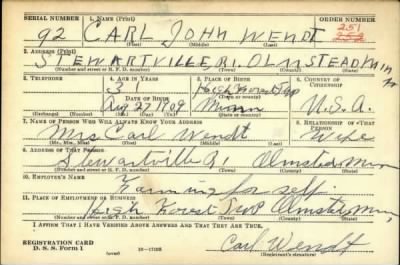 SERIAL NUMBER 1. NAME (Print) ORDER NUMBER
92 CARL JOHN WENDT 251
(First) (Middle) (Last)
2. ADDRESS (Print)
STEWARTVILLE R1. OLMSTEAD MINN
(Number and street or R. F. D. number) (Town) (County) (State)
3. TELEPHONE 4. AGE IN YEARS 5. PLACE OF BIRTH 6. COUNTRY OF CITIZENSHIP
31 High Forest Twp
DATE OF BIRTH (Town or county)
Aug 27 1909 Minn U.S.A.
(Exchange) (No.) (Mo.) (Day) (Yr.) (State or country)
7. NAME OF PERSON WHO WILL ALWAYS KNOW YOUR ADDRESS 8. RELATIONSHIP OF THAT PERSON
Mrs Carl Wendt Wife
(Mr., Mrs., Miss) (First) (Middle) (Last)
9. ADDRESS OF THAT PERSON
Stewartville R1 Olmsted Minn
(Number and street or R. F. D. number) (Town) (County) (State)
10. EMPLOYER'S NAME
Farming for self.
11. PLACE OF EMPLOYMENT OR BUSINESS
High Forest Twp Olmsted Minn
(Number and street or R. F. D. number) (Town) (County) (State)
I AFFIRM THAT I HAVE VERIFIED ABOVE ANSWERS AND THAT THEY ARE TRUE.
REGISTRATION CARD
D. S. S. Form 1 (over) Carl Wendt
(Registrant's signature)